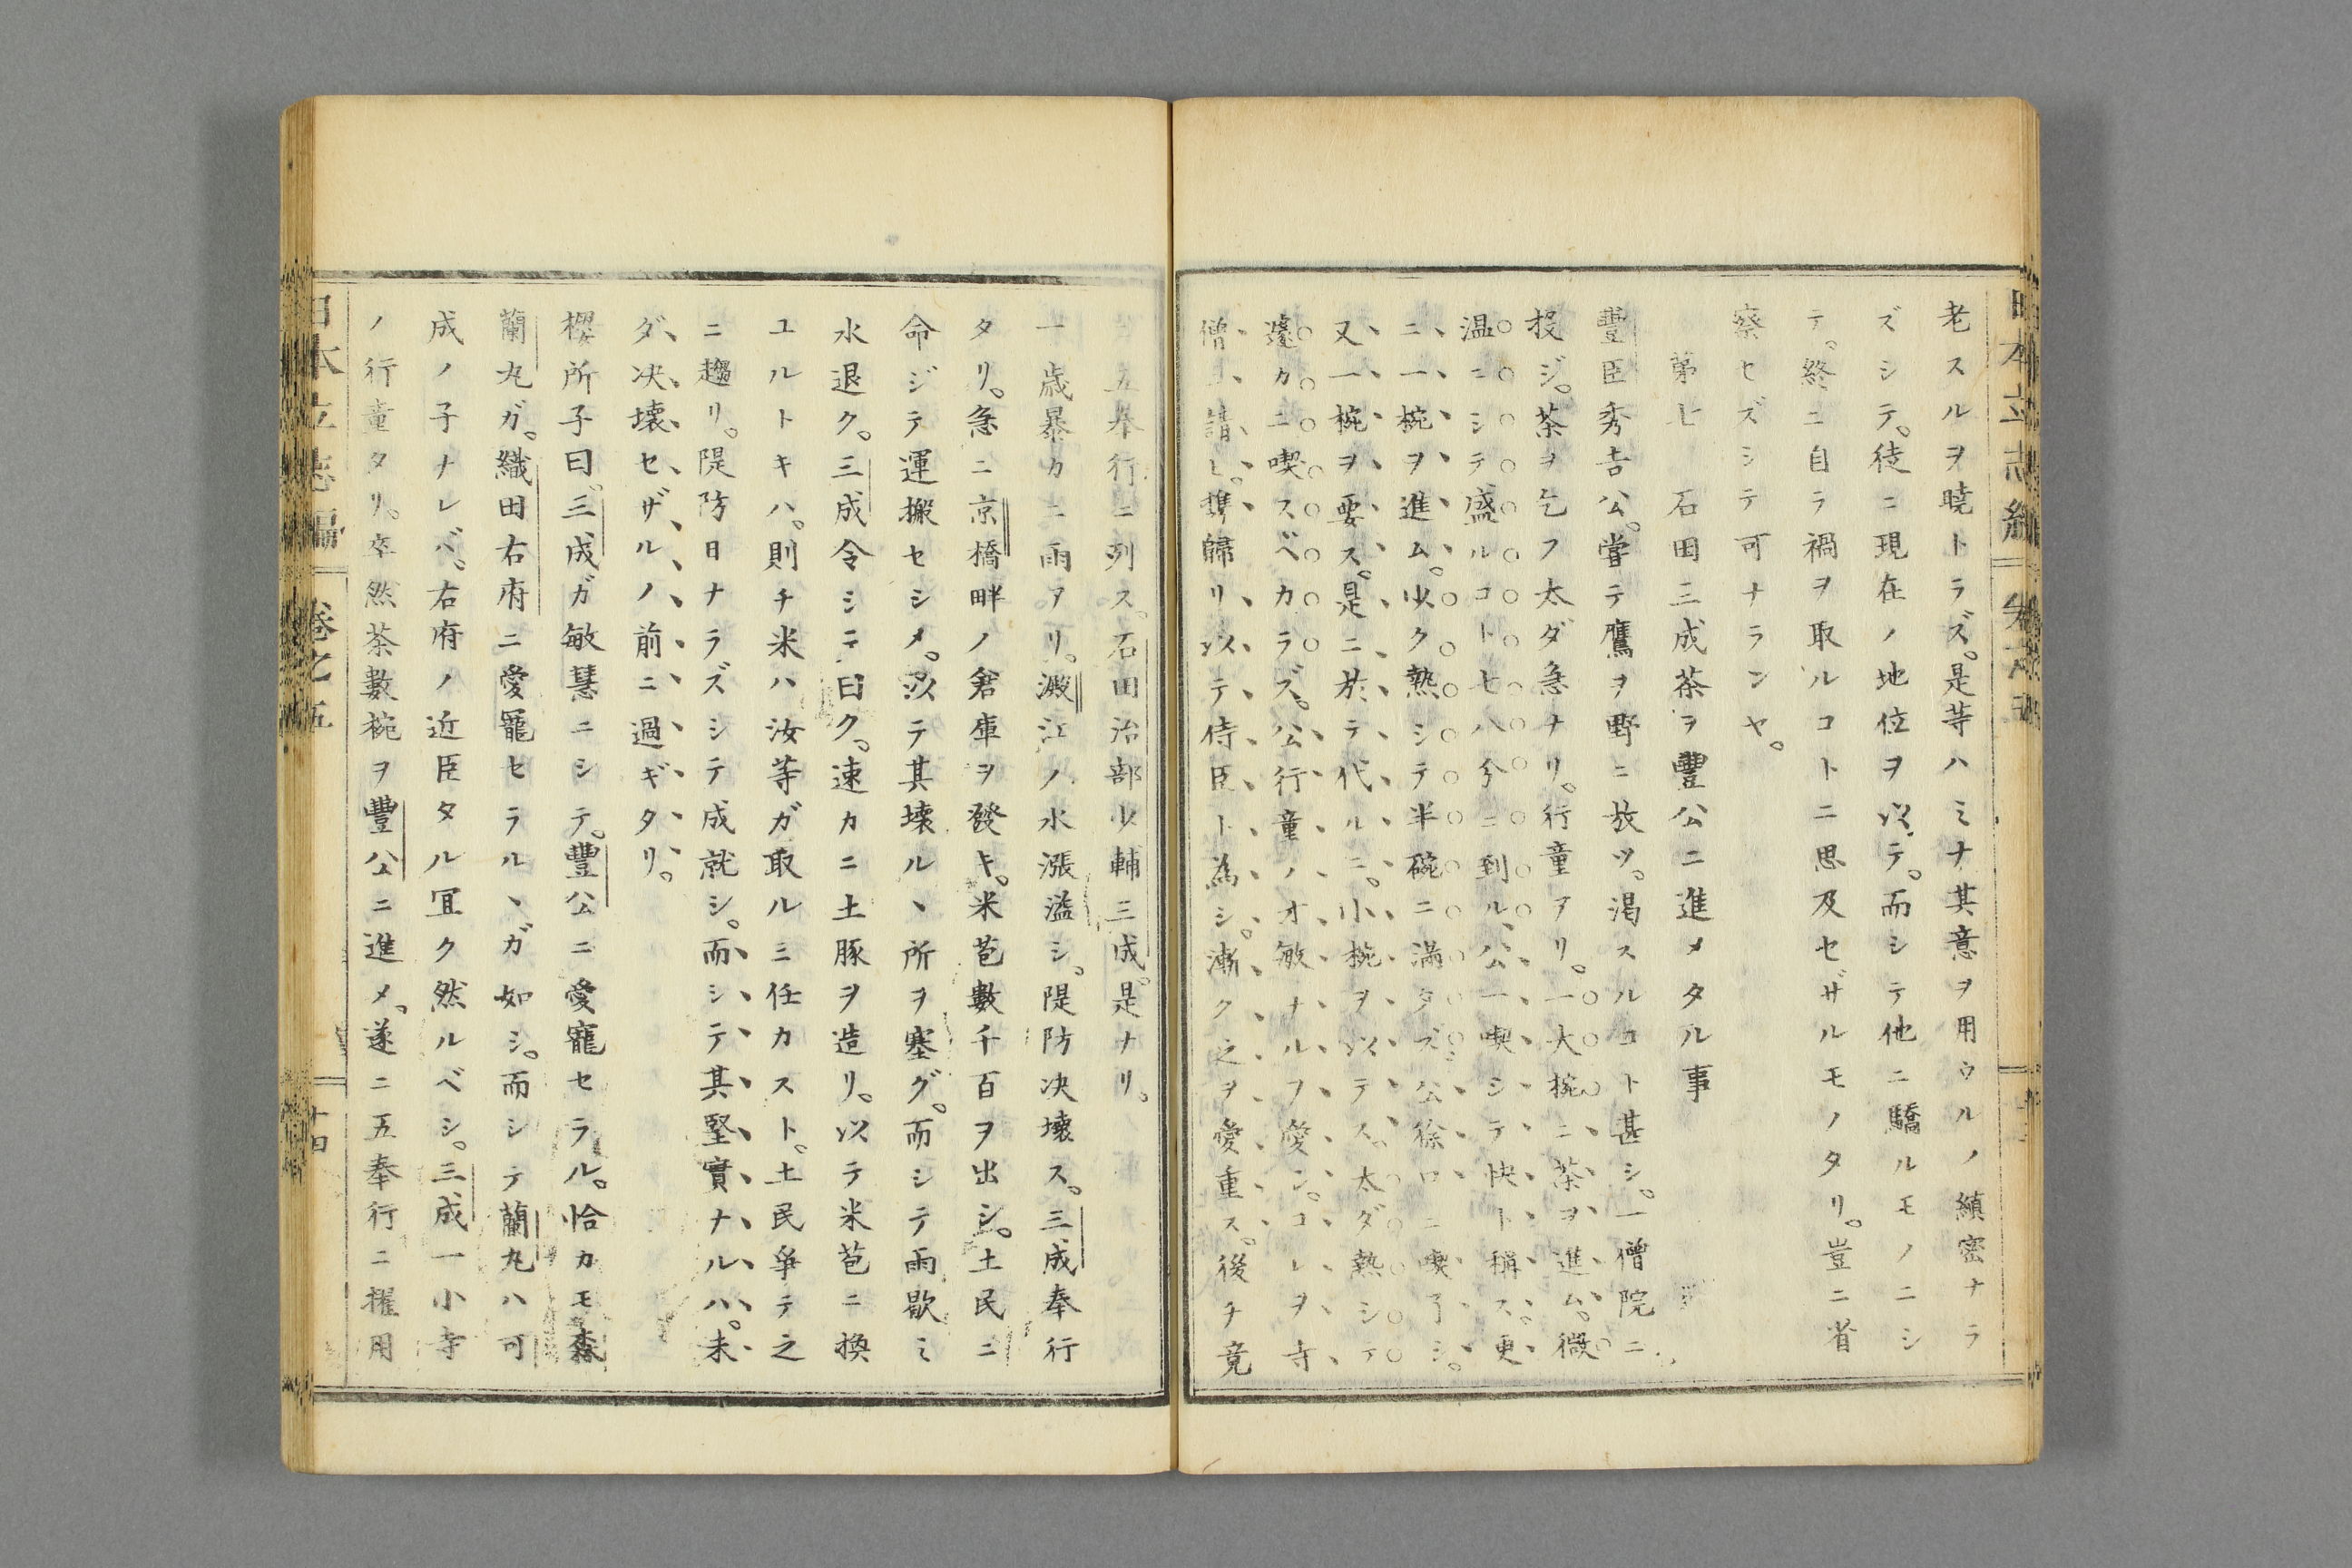 老スルヲ曉トラズ。是等ハミナ其意ヲ用ウルノ縝密ナラ
ズシテ。徒ニ現在ノ地位ヲ以テ。而シテ他ニ驕ルモノニシ
テ。終ニ自ラ禍ヲ取ルコトニ思及セザルモノタリ。豈ニ省
察セズシテ可ナランヤ。
第七 石田三成茶ヲ豐公ニ進メタル事
豐臣秀吉公。嘗テ鷹ヲ野ニ放ツ。渇スルコト甚シ。一僧院ニ
投ジ。茶ヲ乞フ太ダ急ナリ。行童アリ。一大椀ニ茶ヲ進ム。微
温ニシテ盛ルコト七八分ニ到ル、公一喫シテ快ト稱ス。更
ニ一椀ヲ進ム。少ク熱シテ半碗ニ滿タズ。公徐ロニ喫了シ。
又一椀ヲ要ス。是ニ於テ代ルニ。小椀ヲ以テス。太ダ熱シテ
遽カニ喫スベカラズ。公行童ノ才敏ナルヲ愛シ。コレヲ寺
僧ニ請ヒ。携歸リ以テ侍臣ト為シ。漸ク之ヲ愛重ス。後チ竟
ニ五奉行ニ列ス。石田治部少輔三成。是ナリ。
一歳暴カニ雨フリ。澱江ノ水漲溢シ。隄防決壞ス。三成奉行
タリ。急ニ京橋畔ノ倉庫ヲ發キ。米苞數千百ヲ出シ。土民ニ
命ジテ運搬セシメ。以テ其壞ルヽ所ヲ塞グ。而シテ雨歇ミ
水退ク。三成令シテ曰ク。速カニ土豚ヲ造リ。以テ米苞ニ換
ユルトキハ。則チ米ハ汝等ガ取ルニ任カスト。土民爭テ之
ニ趨リ。隄防日ナラズシテ成就シ。而シテ其堅實ナルハ。未
ダ決壞セザルノ前ニ過ギタリ。
櫻所子曰。三成ガ敏慧ニシテ。豐公ニ愛寵セラル。恰カモ森
蘭丸ガ。織田右府ニ愛寵セラルヽガ如シ。而シテ蘭丸ハ可
成ノ子ナレバ。右府ノ近臣タル冝ク然ルベシ。三成一小寺
ノ行童タリ。卒然茶數椀ヲ豐公ニ進メ。遂ニ五奉行ニ擢用
日本立志編 卷之五 十四